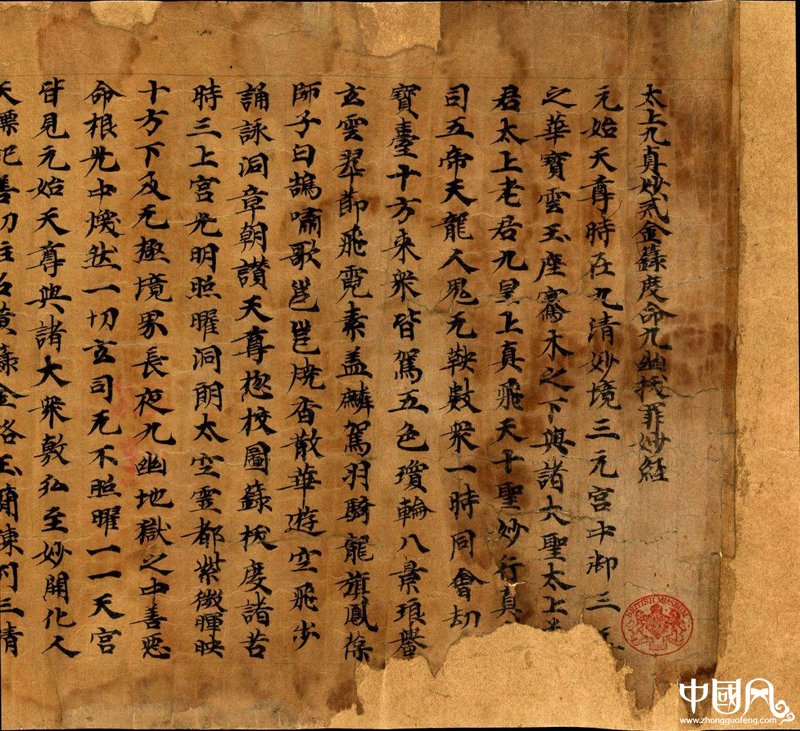 太上九真妙戒金籙度命九幽拔罪妙經
元始天尊時在九清妙境三元宮中御三
之華寶雲玉座騫木之下與諸大聖太上
君太上老君九皇上真飛天十聖妙行真
司五帝天龍人鬼无鞅數衆一時同會刧
寶臺十方來衆皆駕五色瓊輪八景琅轝
玄雲翠節飛霓素盖麟駕羽騎龍旗鳳葆
師子白鵠嘯歌邕邕燒香散華遊空飛步
誦詠洞章朝讃天尊捴校圖籙拔度諸苦
時三上宮光明照曜洞朗太空靈都紫微暉映
十方下及无極境界長夜九幽地獄之中善惡
命根光中煥然一切玄司无不照曜一一天宮
皆見元始天尊與諸大衆敷弘至妙開化人
BRITISH MUSEUM
中國风
www.zhongguofeng.com